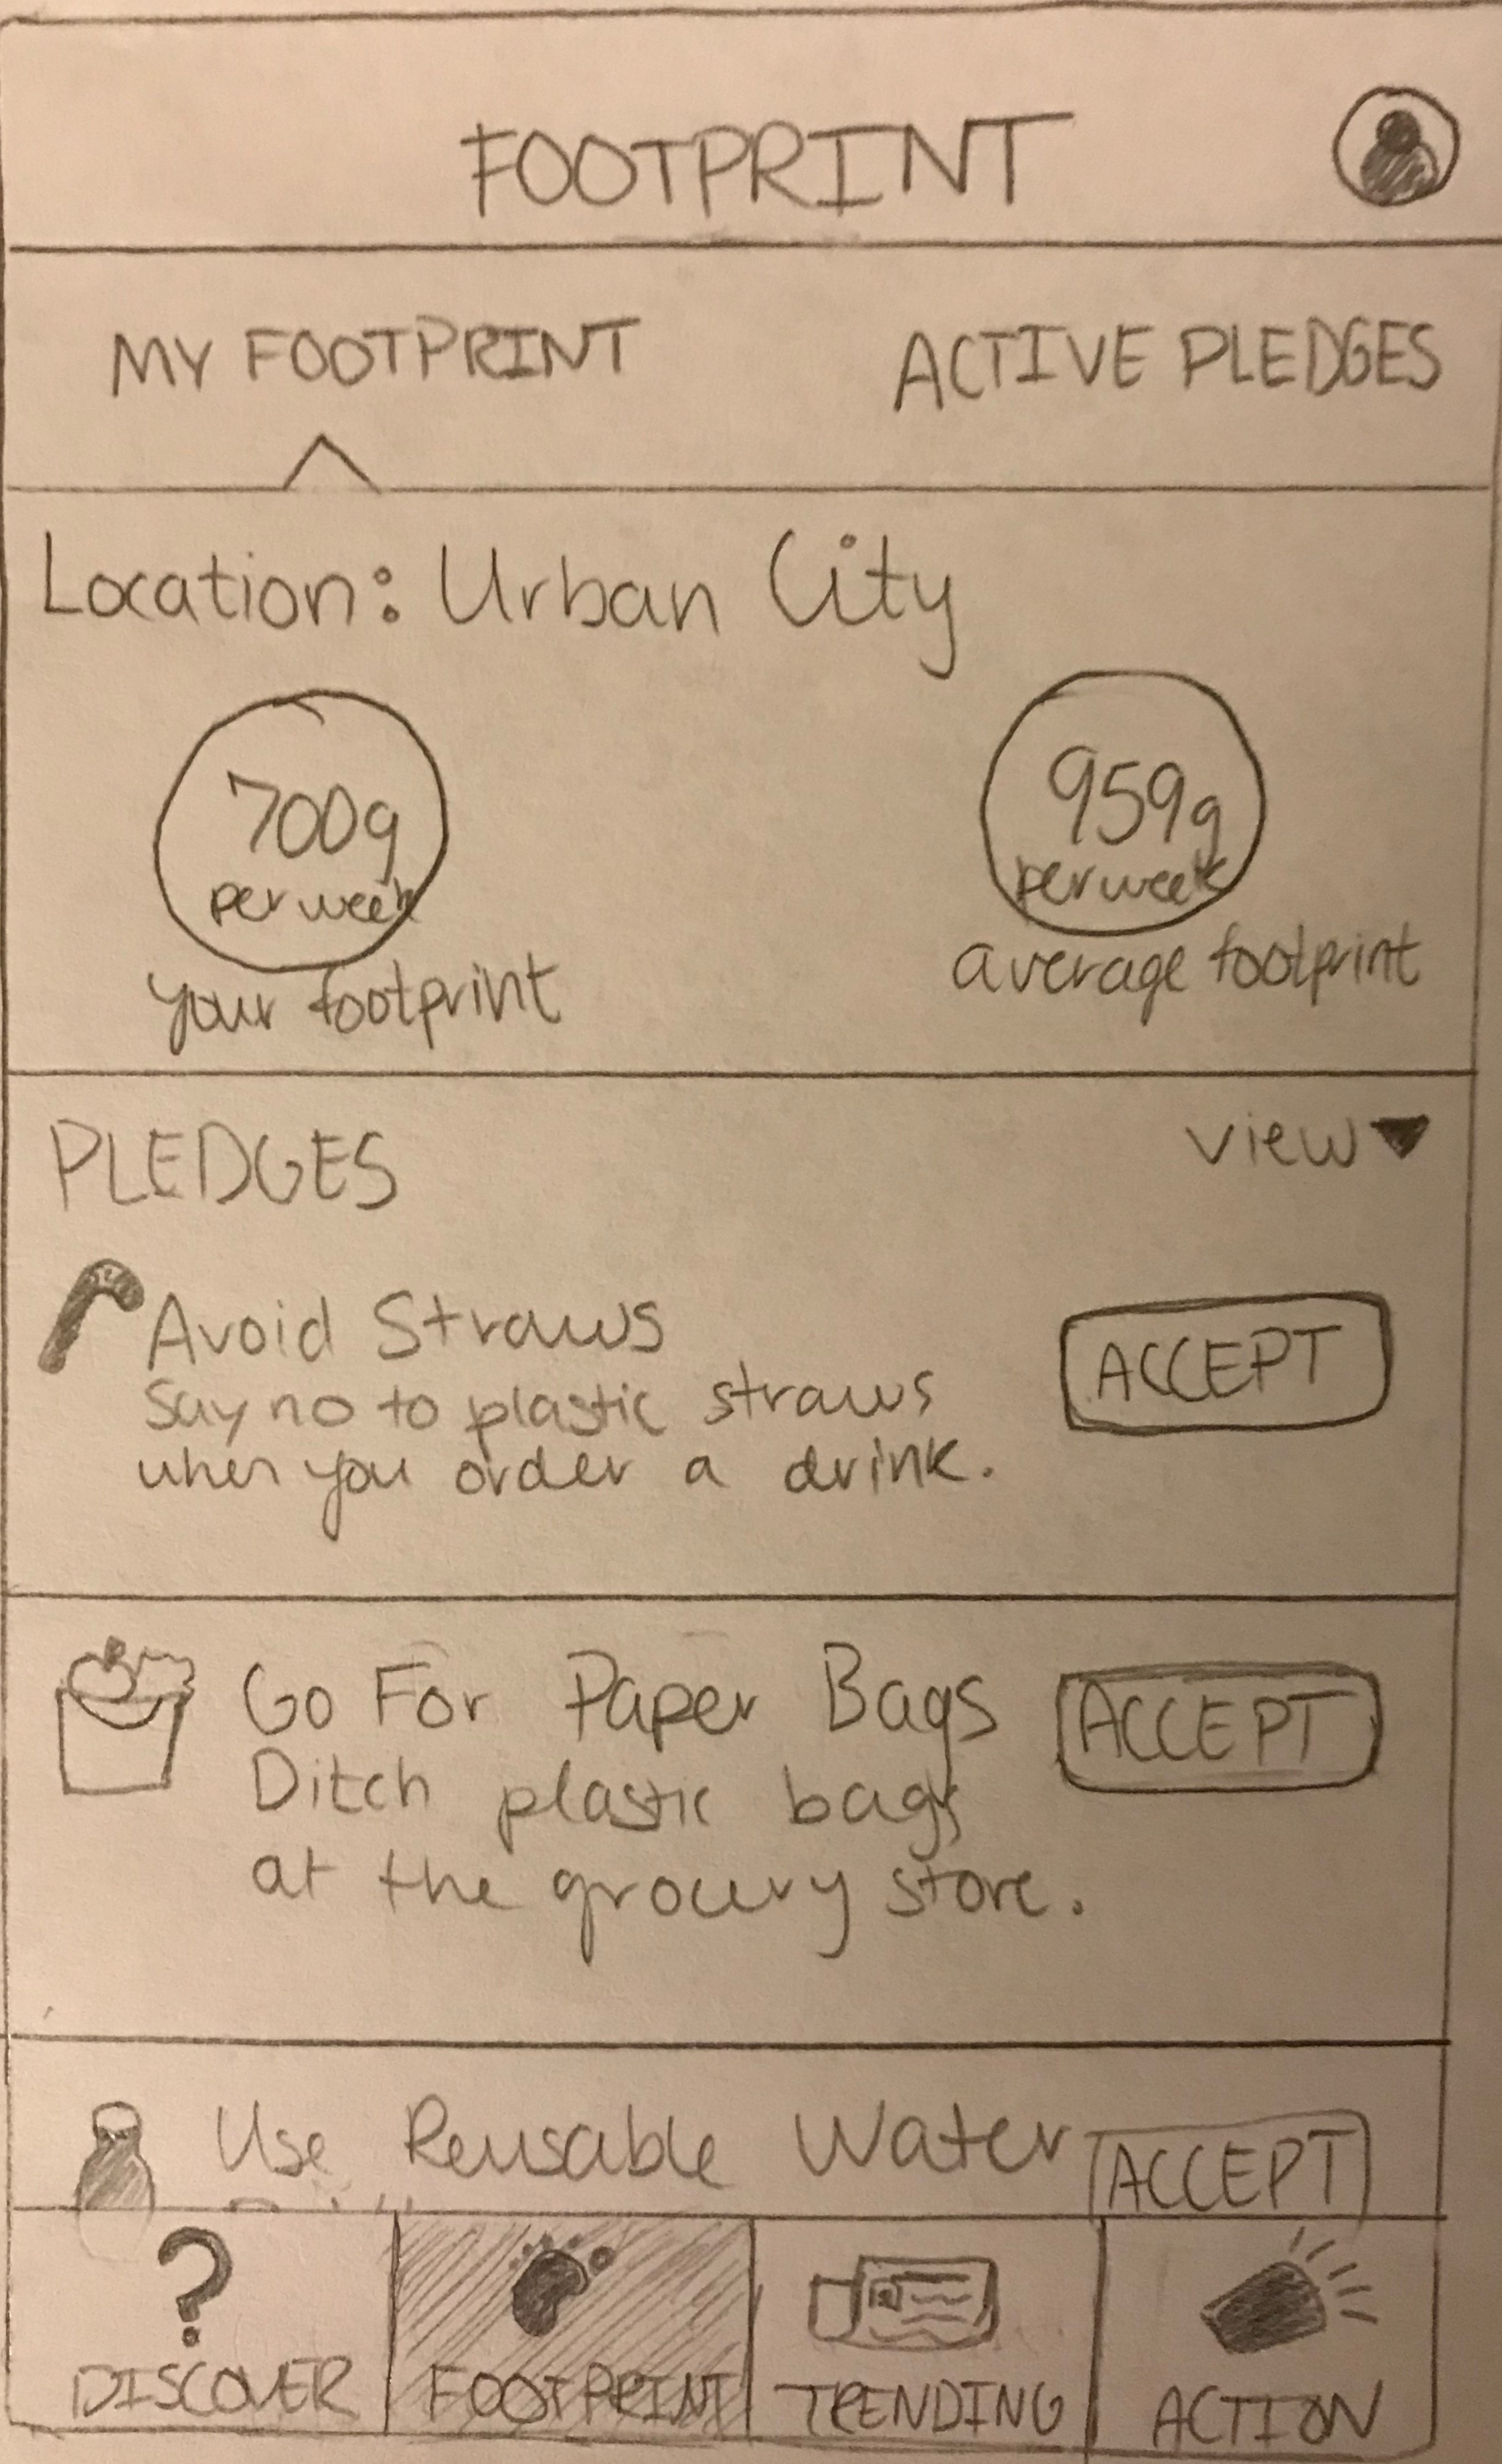 FOOTPRINT
MY FOOTPRINT ACTIVE PLEDGES
Location: Urban City
700g
per week
your footprint
959g
per week
average footprint
PLEDGES view
Avoid Straws
Say no to plastic straws
when you order a drink.
ACCEPT
Go For Paper Bags
Ditch plastic bags
at the grocery store.
ACCEPT
Use Reusable Water
ACCEPT
?
DISCOVER FOOTPRINT TRENDING ACTION